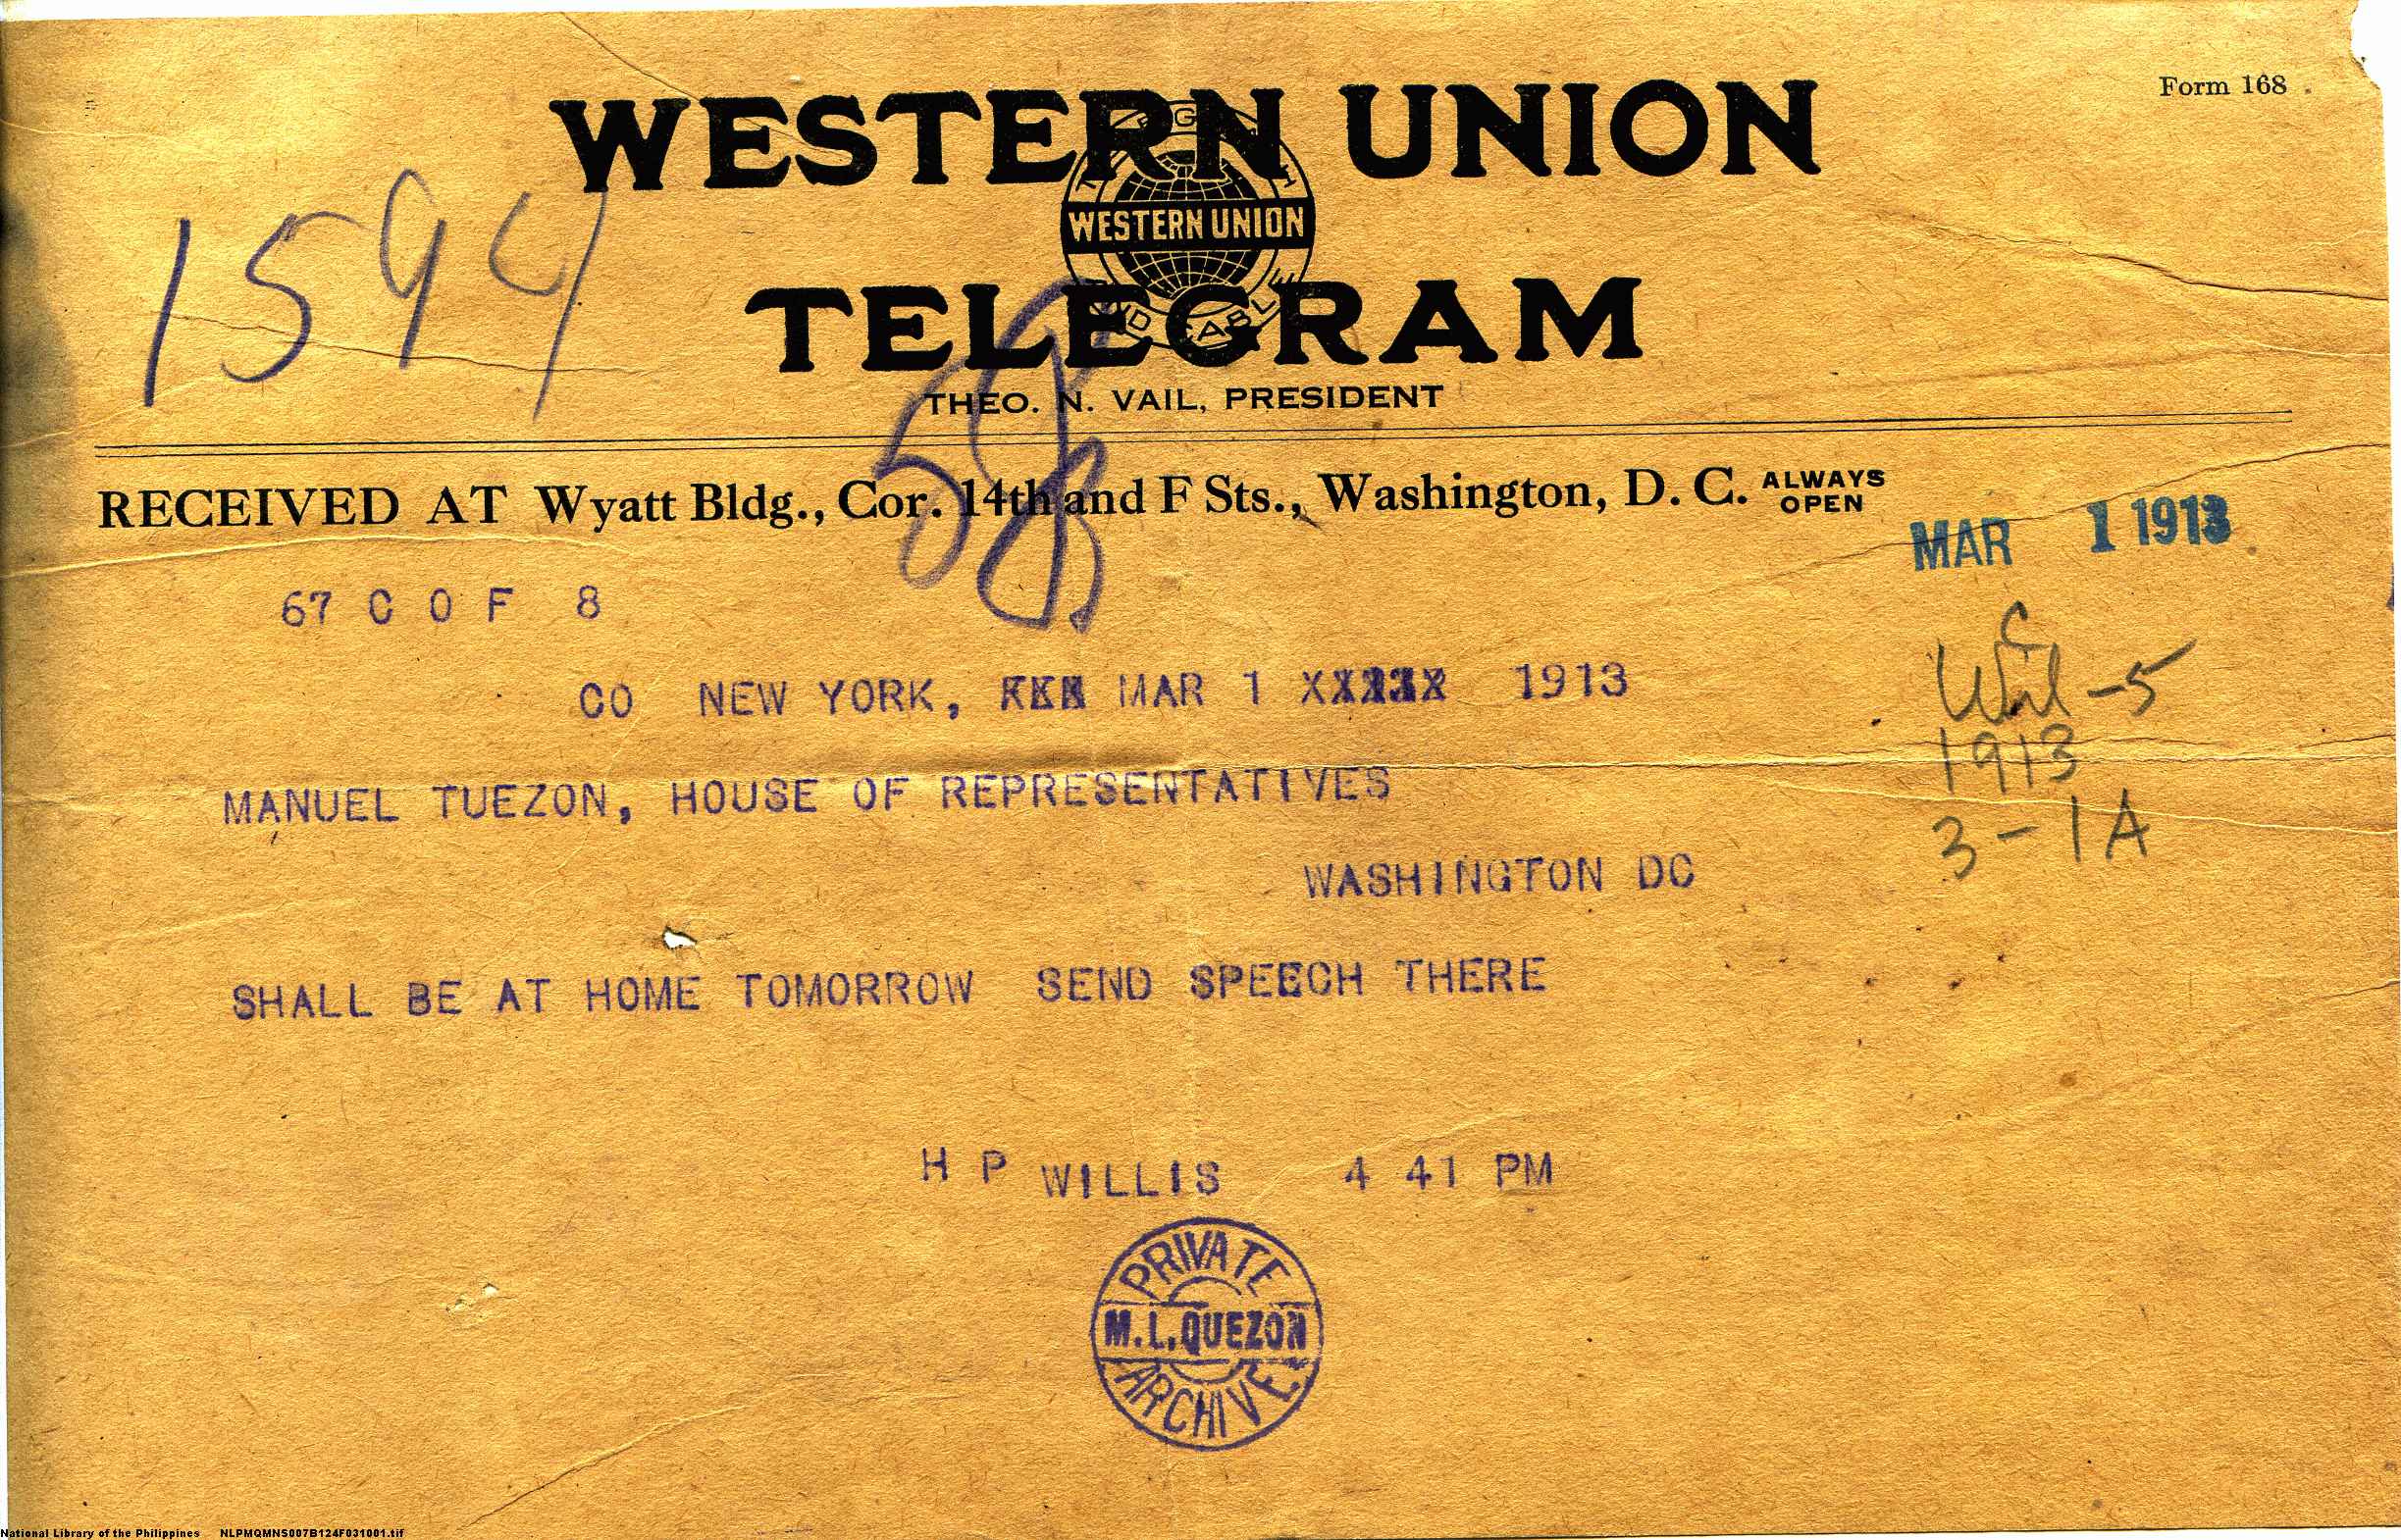 Form 168
WESTERN UNION
TELEGRAPH
WESTERN UNION
AND CABLE
TELEGRAM
THEO. N. VAIL, PRESIDENT
1594
58
RECEIVED AT Wyatt Bldg., Cor. 14th and F Sts., Washington, D. C. ALWAYS OPEN
MAR 1 1913
67 C O F 8
C
Wil-5
1913
3-1A
CO NEW YORK, MAR 1 1913
MANUEL TUEZON, HOUSE OF REPRESENTATIVES
WASHINGTON DC
SHALL BE AT HOME TOMORROW SEND SPEECH THERE
H P WILLIS 4 41 PM
PRIVATE
M.L.QUEZON
ARCHIVE
National Library of the Philippines NLPMQMNS007B124F031001.tif